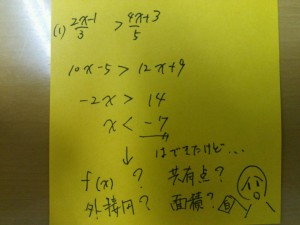 (1) 2x-1/3 > 4x+3/5
10x-5 > 12x+9
-2x > 14
x < -7
↓ はできたけど...
f(x) ? 共有点?
外接円? 面積?